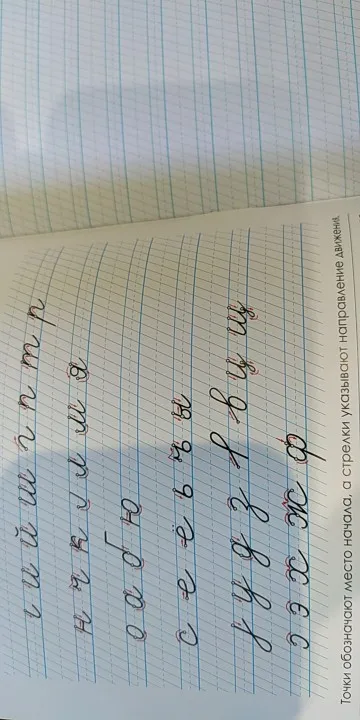 и й ш г п т р
н к л м я
о а б ю
с е ё ь ъ ы
у д з в ц щ
э х ж ф
Точки обозначают место начала, а стрелки указывают направление движения.